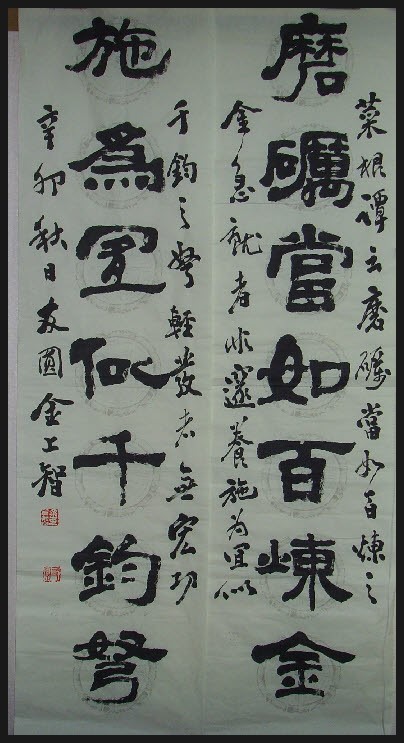 菜根譚云磨礪當如百煉之
磨礪當如百煉金
金急就者非邃養施为宜似
千鈞之弩輕發者無宏功
施爲宜似千鈞弩
辛卯秋日友圓金智